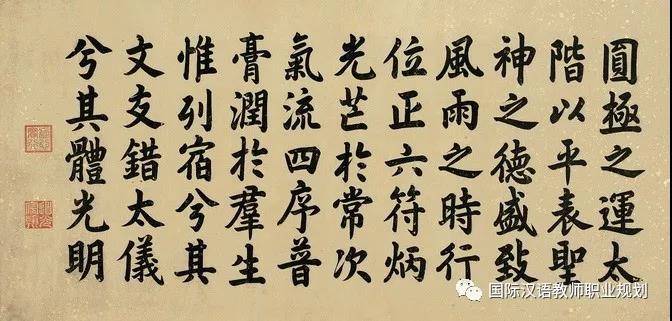 圓極之運太
階以平表聖
神之德盛致
風雨之時行
位正六符炳
光芒於常次
氣流四序普
膏潤於羣生
惟列宿兮其
文友錯太儀
兮其體光明
国际汉语教师职业规划